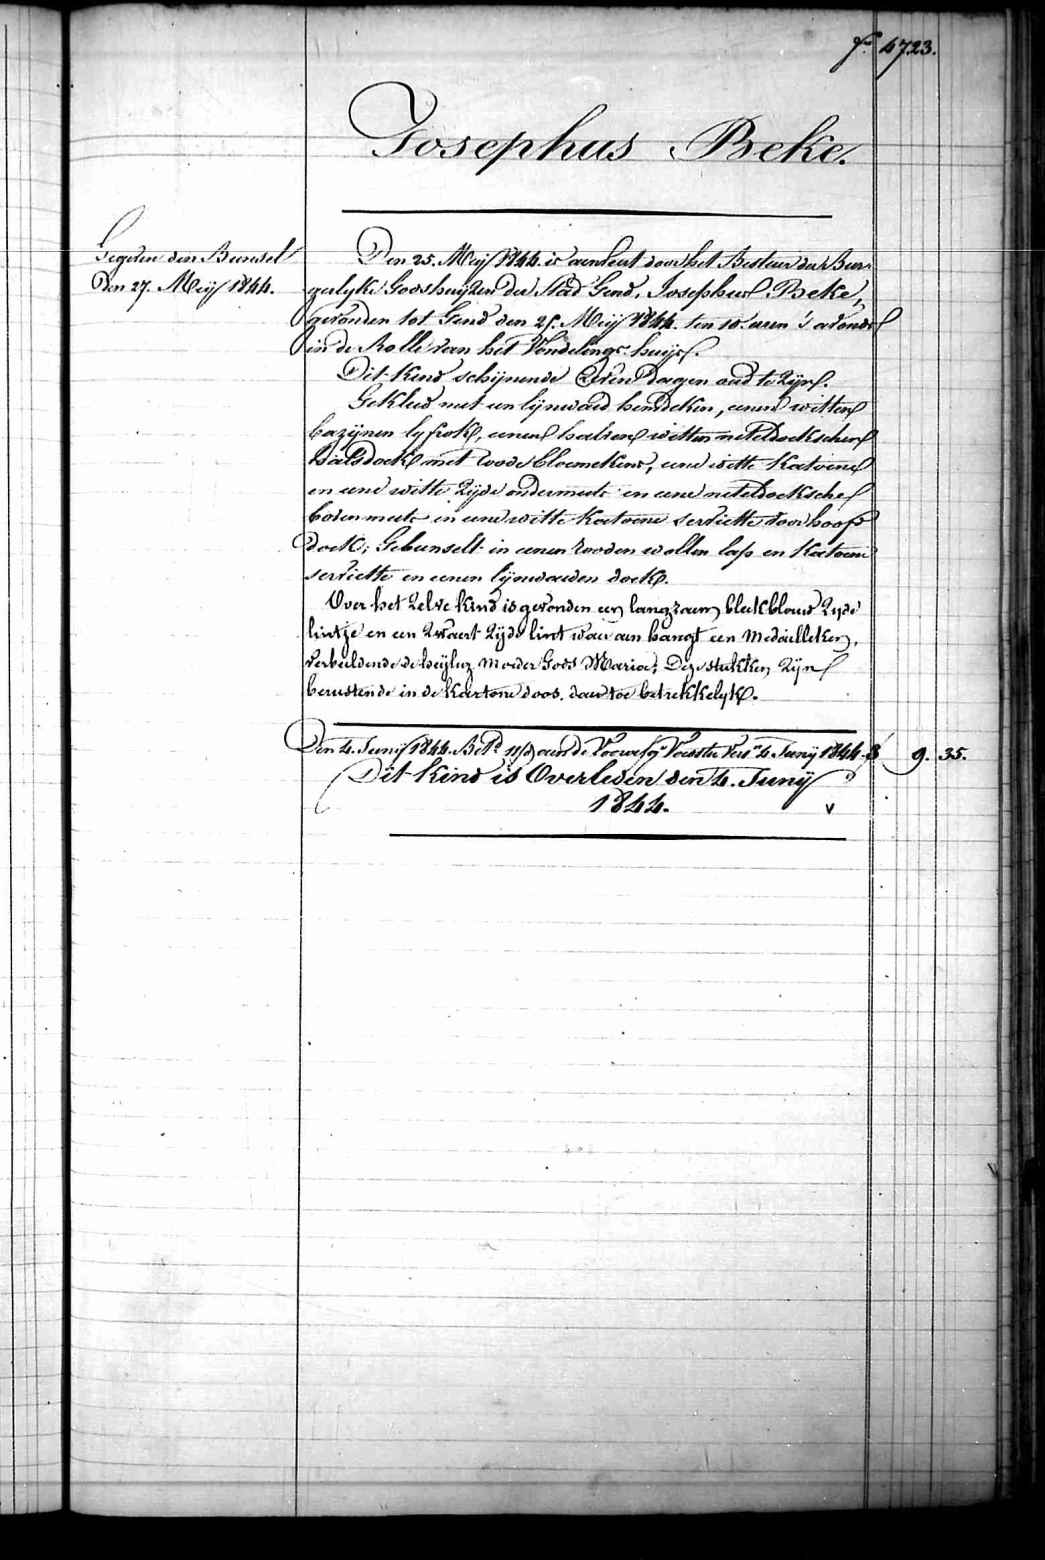 f.º 4723.
Josephus Beke.
Gegeven den Bunsel
Den 27. Meij 1844.
Den 25. Meij 1844 is aenveert door het Bestuer der Bur-
gerlyke Godshuyzen der Stad Gend, Josephus Beke,
gevonden tot Gend den 25. Meij 1844. ten 10. uren 's avonds
in de Rolle van het Vondelings-huijs.
Dit kind schijnende Seven Dagen oud te zijn.
Gekleed met een lijnwaed hemdeken, eenen witten
bazijnen lyfrok, eenen halven witten neteldoekschen
halsdoek met roode bloemekens, eene witte katoene
en eene witte zijde ondermuts en eene neteldoeksche
bovenmuts en eene witte katoene serviette voor hoofd
doek; Gebunselt in eenen rooden wollen lap en katoene
serviette en eenen lijnwaeden doek.
Over het zelve kind is gevonden een langzaem bleekblauw zyde
lintje en een zwaert zijde lint waer aen hangt een medailleken,
verbeeldende de heylig moeder Gods Maria; Deze stukken zijn
berustende in de kartone doos. daertoe betrekkelyk.
Den 4. Junij 1844. Bet.d 11/d aen de Voorsz. Voester Vers.n 4 Junij 1844. 8 9. 35.
Dit kind is Overleden den 4. Junij
1844. v